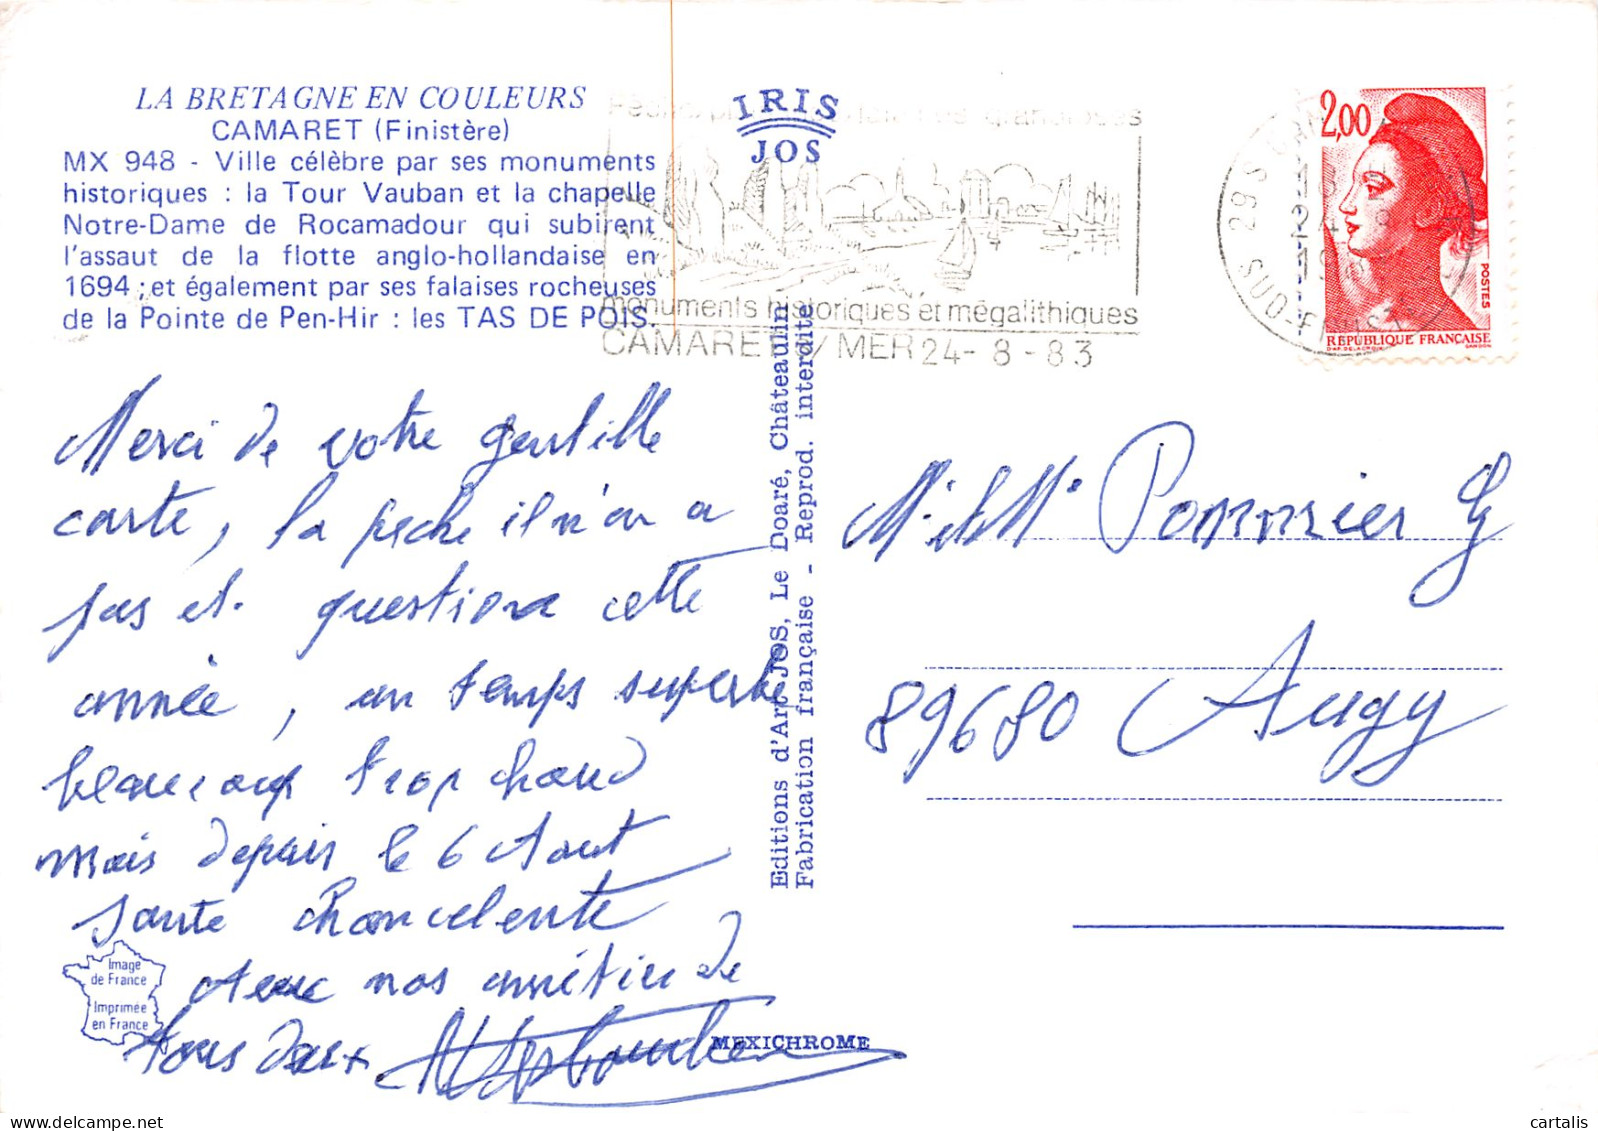 LA BRETAGNE EN COULEURS
CAMARET (Finistère)
MX 948 - Ville célèbre par ses monuments
historiques : la Tour Vauban et la chapelle
Notre-Dame de Rocamadour qui subirent
l'assaut de la flotte anglo-hollandaise en
1694 ; et également par ses falaises rocheuses
de la Pointe de Pen-Hir : les TAS DE POIS.
IRIS
JOS
monuments historiques et mégalithiques
CAMARET S/ MER 24-8-83
29 S
SUD-FINIST
2,00
POSTES
RÉPUBLIQUE FRANÇAISE
Merci de votre gentille
carte, la peche il n'en a
pas et question cette
année, un temps superbe
beaucoup trop chaud
mais depuis le 6 Aout
sante chancelente
Avec nos amitiés de
tous deux
M. et Me Pommier G
89680 Augy
Editions d'Art JOS, Le Doaré, Châteaulin
Fabrication française - Reprod. interdite
Image
de France
Imprimée
en France
MEXICHROME
cartalis